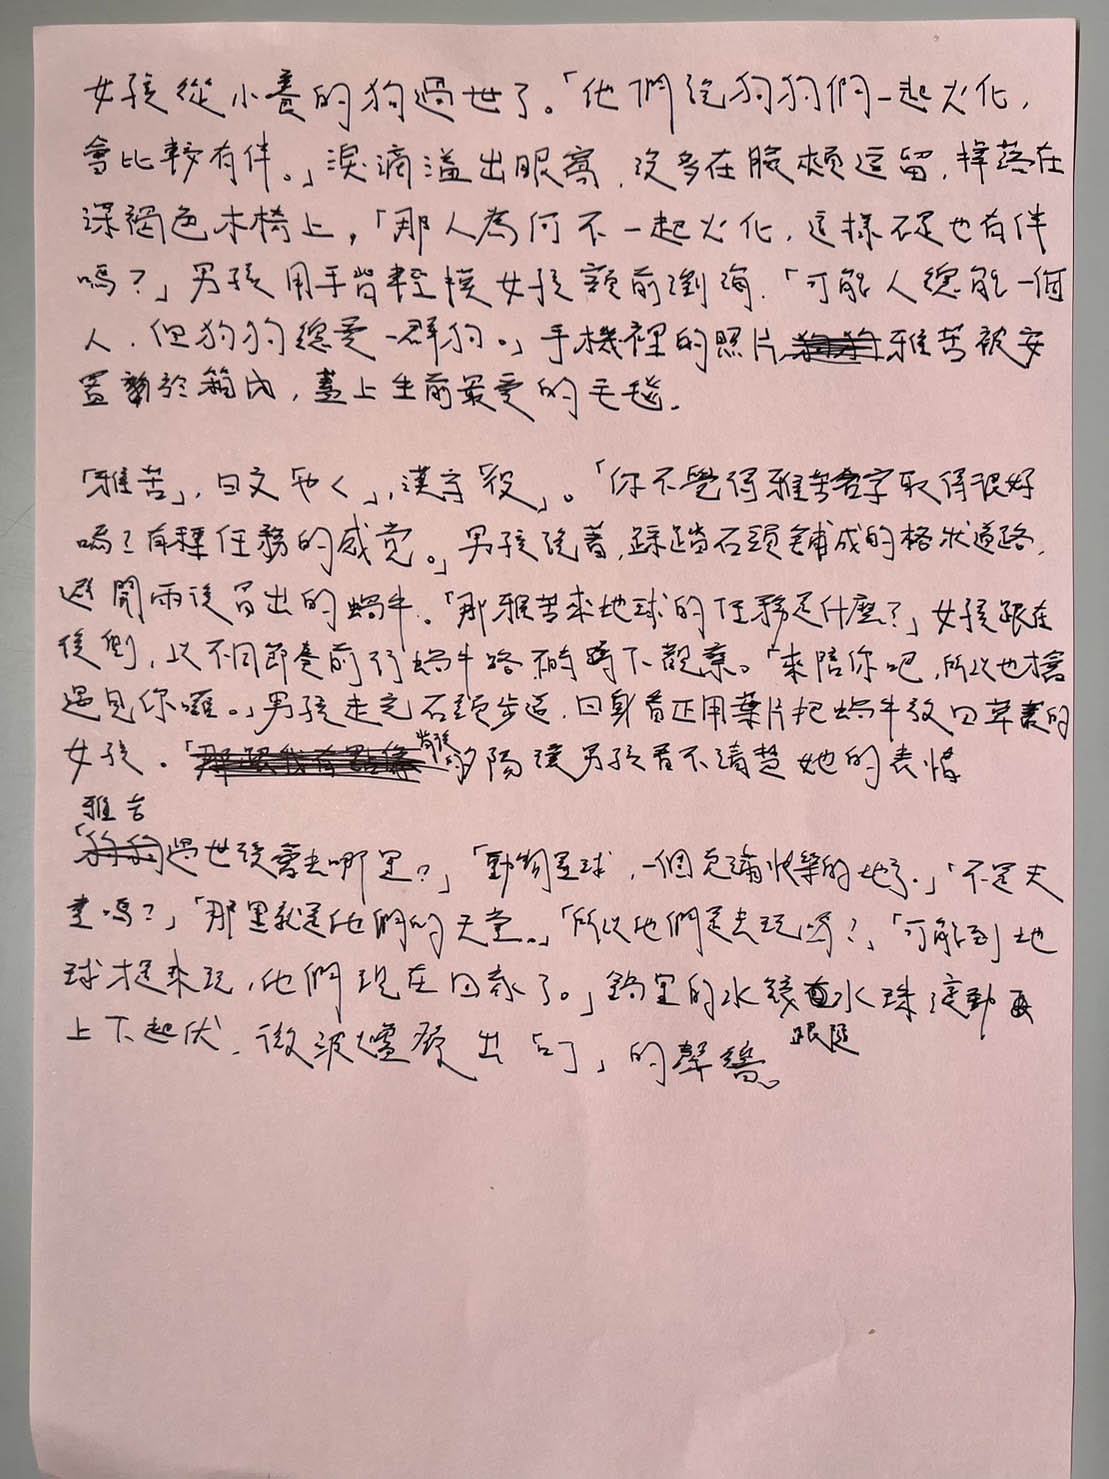 女孩從小養的狗過世了。「他們說狗狗們一起火化,
會比較有伴。」淚滴溢出眼窩,沒多在臉頰逗留,掉落在
深褐色木椅上,「那人為何不一起火化,這樣不是也有伴
嗎?」男孩用手背輕摸女孩額前瀏海,「可能人總能一個
人,但狗狗總愛一群狗。」手機裡的照片,雅苦被安
置於箱內,蓋上生前最愛的毛毯。
「雅苦」,日文「やく」,漢字「役」。「你不覺得雅苦名字取得很好
嗎?有種任務的感覺。」男孩說著,踩踏石頭鋪成的格狀道路,
避開雨後冒出的蝸牛。「那雅苦來地球的任務是什麼?」女孩跟在
後側,以不同節奏前行,蝸牛路不時蹲下觀察。「來陪你吧,所以也才會
遇見你囉。」男孩走完石頭步道,回身看正用葉片把蝸牛放回草叢的
女孩。背後夕陽讓男孩看不清楚她的表情
「雅苦過世後會去哪裡?」「動物星球,一個充滿快樂的地方。」「不是天
堂嗎?」「那里就是他們的天堂。」「所以他們是去玩嗎?」「可能到地
球才是來玩,他們現在回家了。」鍋里的水餃水珠滾動
上下起伏,微波爐發出「叮」的聲響。